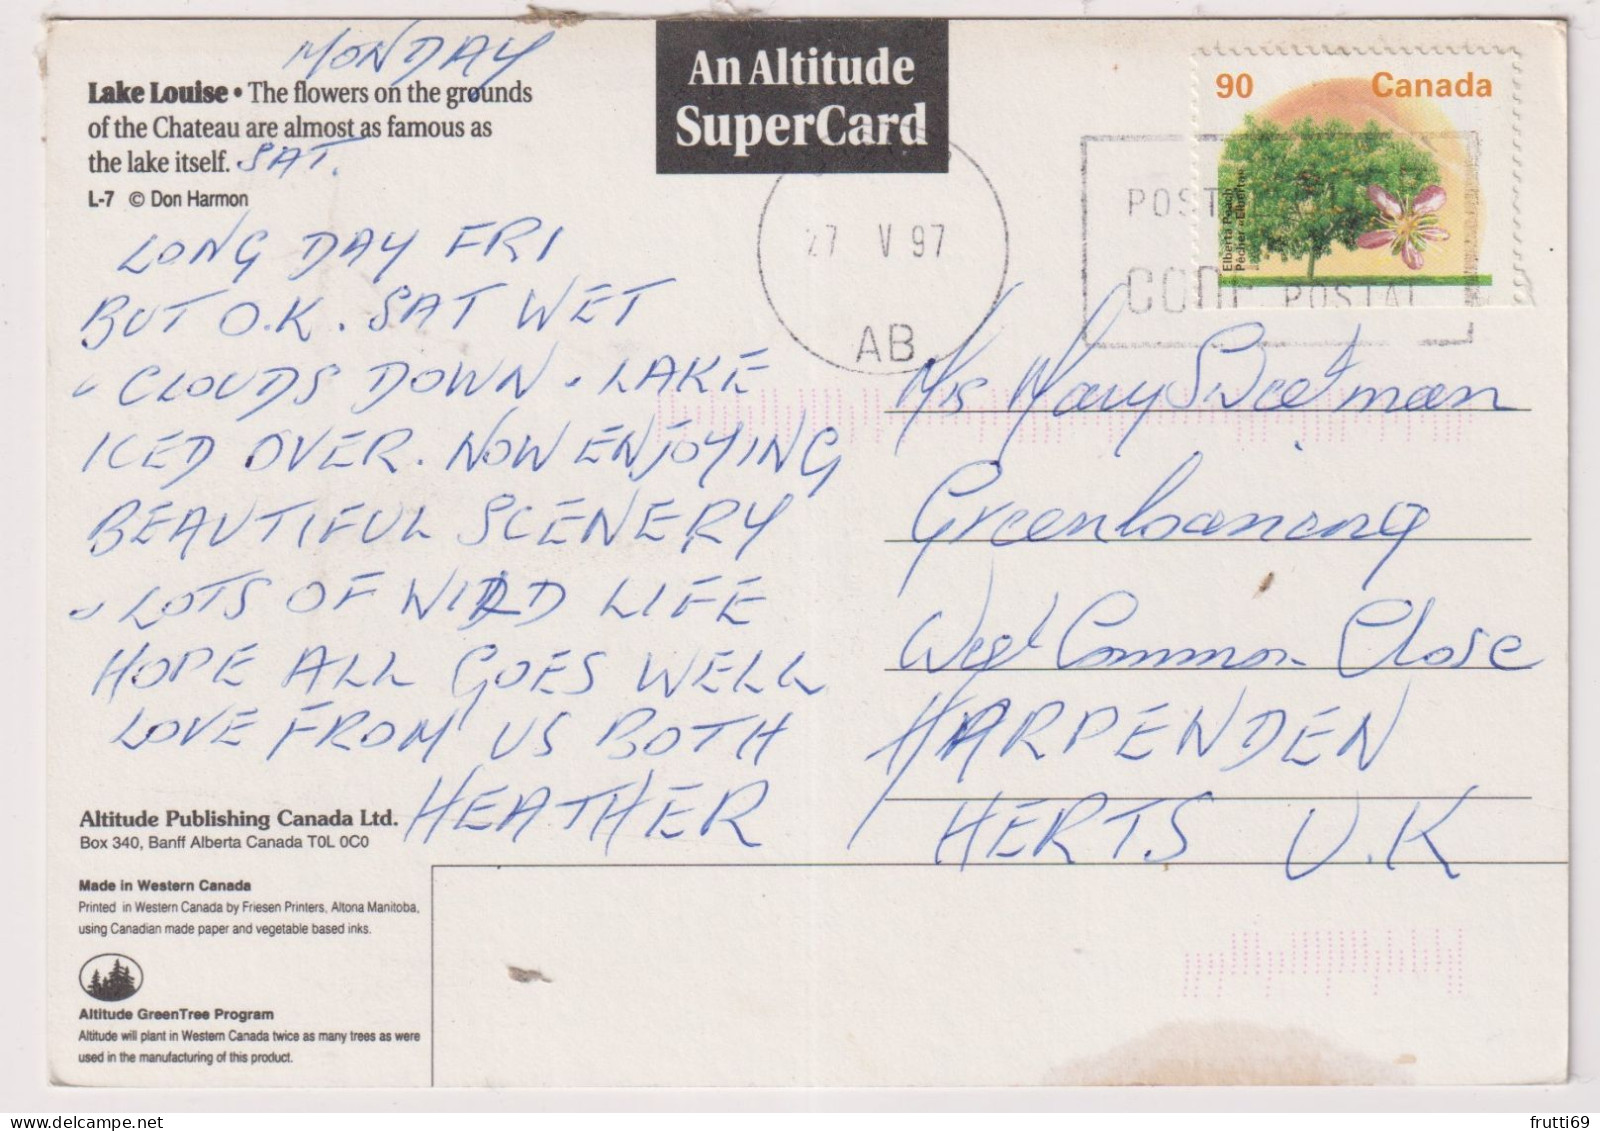 MONDAY
Lake Louise • The flowers on the grounds
of the Chateau are almost as famous as
the lake itself. SAT.
L-7 © Don Harmon
LONG DAY FRI
BUT O.K. SAT WET
CLOUDS DOWN. LAKE
ICED OVER. NOW ENJOYING
BEAUTIFUL SCENERY
LOTS OF WILD LIFE
HOPE ALL GOES WELL
LOVE FROM US BOTH
HEATHER
Altitude Publishing Canada Ltd.
Box 340, Banff Alberta Canada T0L 0C0
Made in Western Canada
Printed in Western Canada by Friesen Printers, Altona Manitoba,
using Canadian made paper and vegetable based inks.
Altitude GreenTree Program
Altitude will plant in Western Canada twice as many trees as were
used in the manufacturing of this product.
An Altitude
SuperCard
27 V 97
AB
90 Canada
Elberta Peach
Pêcher «Elberta»
POSTAL
CODE POSTAL
Mrs Mary Sweetman
Greenloaning
West Common Close
HARPENDEN
HERTS U.K
frutti69